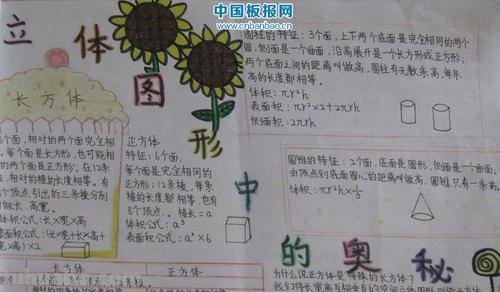 中国板报网
www.cnbanbao.cn
立体图形中的奥秘
长方体
个面，相对的两个面完全相
。每个面是长方形，也可能相
的两个面是正方形。在12条
相对的棱的长度相等。有
个顶点引出的三条棱分别
做长、高宽。
体积公式：长×宽×高
表面积公式：(长×宽+长×高+
宽×高)×2
正方体
特征：6个面，
每个面是完全相同的
正方形；12条棱，每条
棱的长度都相等，也有
8个顶点。棱长=a
体积公式：a³
表面积公式：a²×6
圆柱的特征：3个面，上下两个底面是完全相同的两个
圆，侧面是一个曲面，沿高展开是一个长方形或正方形；
两个底面之间的距离叫做高，圆柱有无数条高，每条
高的长度都相等。
体积：πr²h
表面积：πr²×2+2πrh
侧面积：2πrh
圆锥的特征：2个面，底面是圆形，侧面是一个曲面，
由顶点到底面圆心的距离叫做高，圆锥只有一条高
体积：πr²h×1/3
长方体
正方体
为什么说正方体是特殊的长方体？